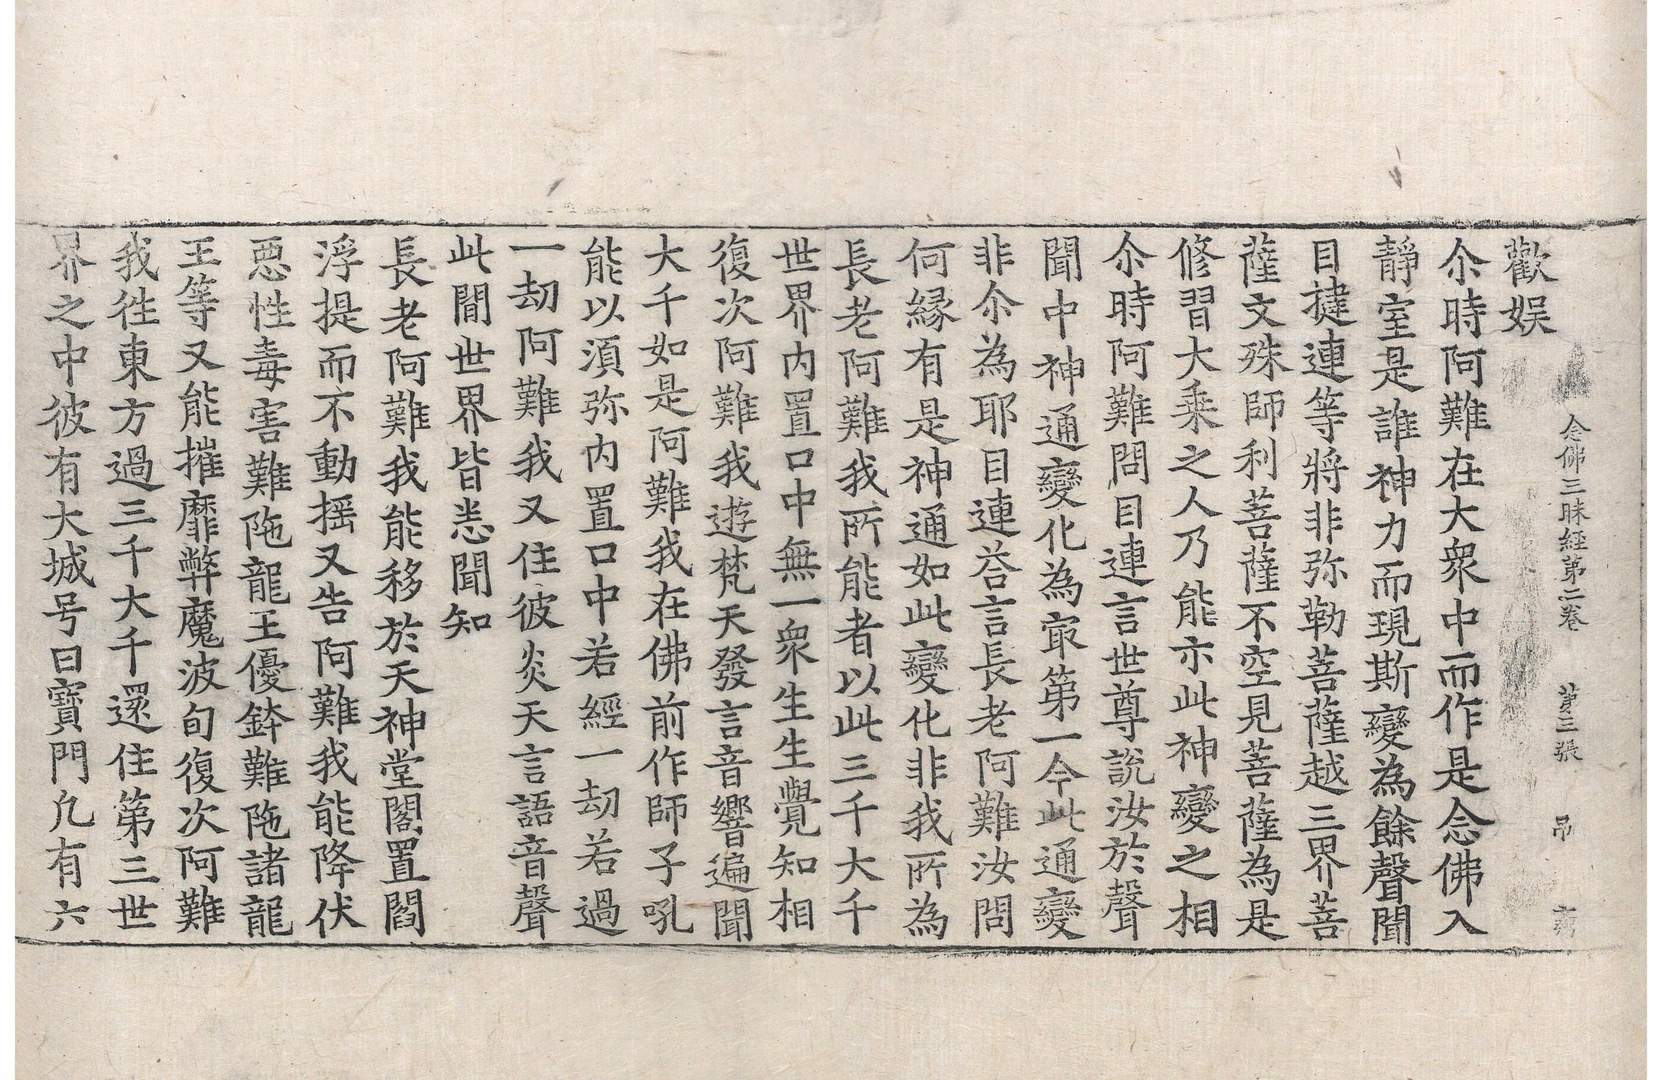 念佛三昧經第二卷　第三張　吊
歡娱
尒時阿難在大衆中而作是念佛入
静室是誰神力而現斯變為餘聲聞
目揵連等將非弥勒菩薩越三界菩
薩文殊師利菩薩不空見菩薩為是
修習大乘之人乃能亦此神變之相
尒時阿難問目連言世尊説汝於聲
聞中神通變化為㝡第一今此通變
非尒為耶目連荅言長老阿難汝問
何縁有是神通如此變化非我所為
長老阿難我所能者以此三千大千
世界内置口中無一衆生生覺知相
復次阿難我遊梵天發言音響遍聞
大千如是阿難我在佛前作師子吼
能以湏弥内置口中若經一劫若過
一劫阿難我又住彼炎天言語音聲
此間世界皆悉聞知
長老阿難我能移於天神堂閣置閻
浮提而不動摇又告阿難我能降伏
惡性毒害難陁龍王優鉢難陁諸龍
王等又能摧靡弊魔波旬復次阿難
我徃東方過三千大千還住第三世
界之中彼有大城号曰寶門凢有六